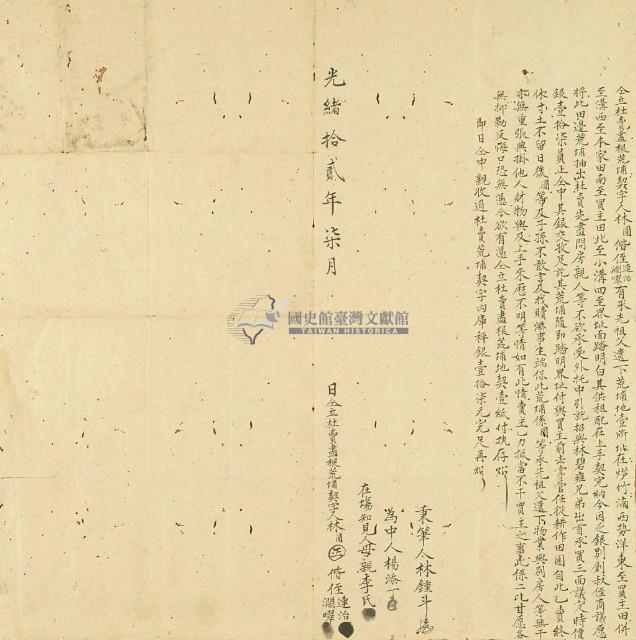 仝立杜賣盡根荒埔契字人林圓偕侄連治澗嘓有承先祖父遺下荒埔地壹所址在竹滴西勢洋東至買主田併
至溝西至本家田南至買主田北至小溝四至界址面踏明白其供租配在上手契完納今因乏銀別創叔侄商議愿
將此田邊荒埔抽出杜賣先盡問房親人等不欲承受外托中引就招與林碧雍兄弟出首承買三面議定時價
銀壹拾柒員正仝中其銀交收足訖其荒埔隨即踏明界址付與買主前去掌管任從耕作田園自此乙賣終
休寸土不留日後圓等及子孫不敢言及找贖滋事生端保此荒埔係圓等承先祖父遺下物業與別房人等無
亦無重張典掛他人財物與及上手來歷不明等情如有此情賣主一力抵當不干買主之事此係二比甘愿各
無抑勒反悔口恐無憑今欲有憑仝立杜賣盡根荒埔地契壹紙付執存炤
即日仝中親收過杜賣荒埔契字內庫秤銀壹拾柒元完足再炤
秉筆人林鍾斗
為中人楊添丁
在場知見人母親李氏
光緒拾貳年柒月 日仝立杜賣盡根荒埔契字人林圓偕侄連治
國史館臺灣文獻館
TAIWAN HISTORICA